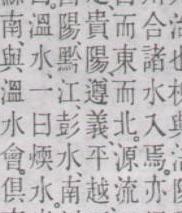 合諸水入焉。亦
而東而北。源流
貴陽遵義平越
陽黔江彭水南
溫水一曰煗水。
南與溫水會俱